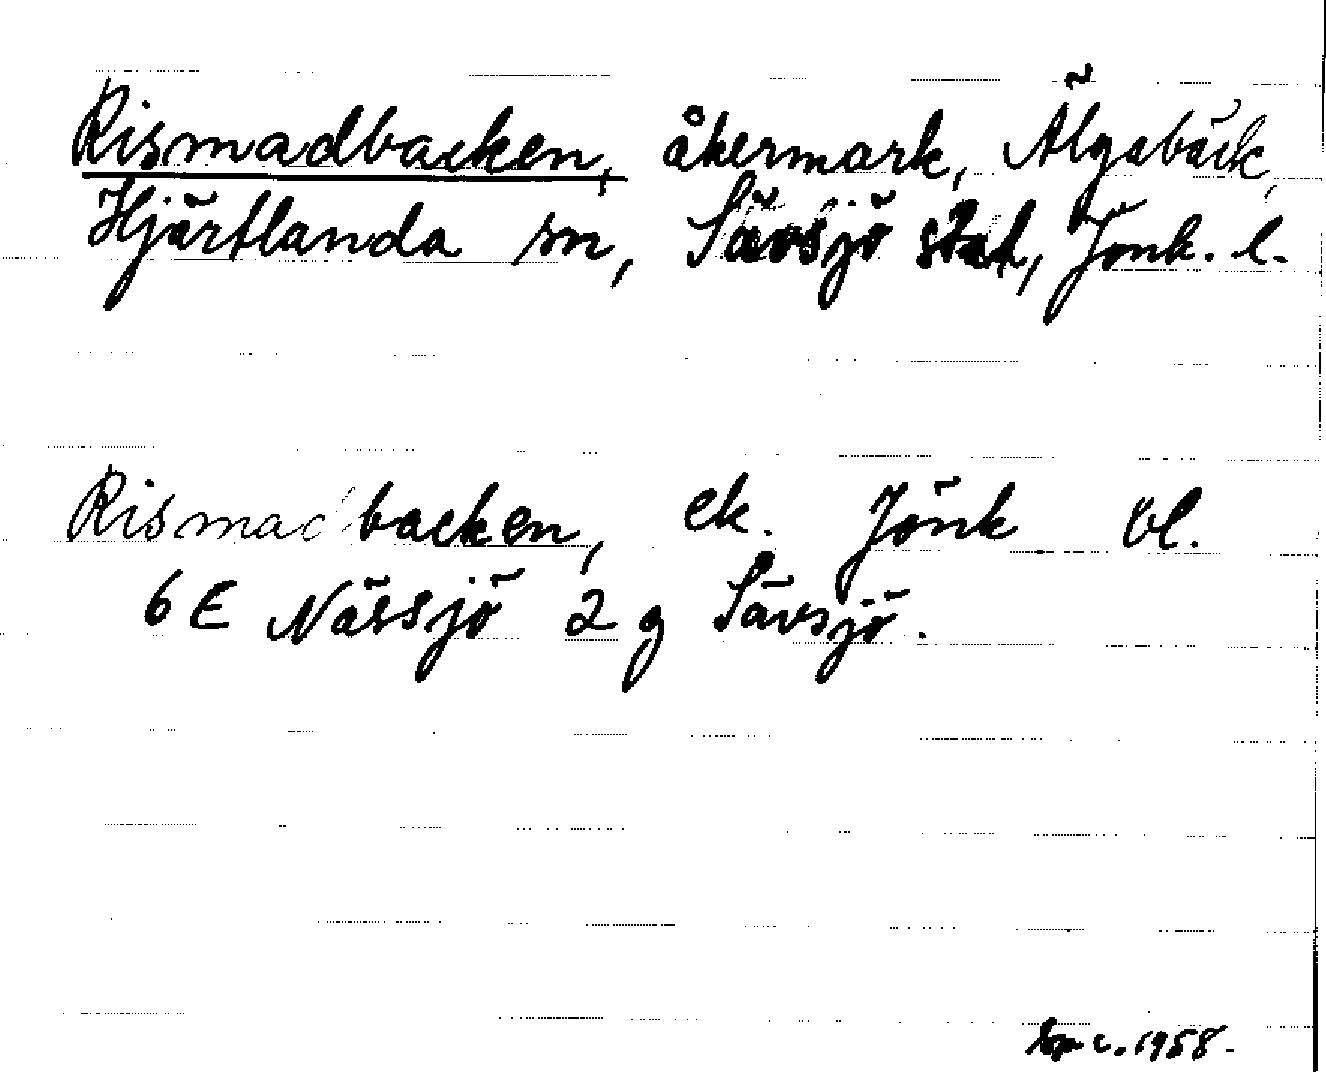 Rismadbacken, åkermark, Älgabäck,
Hjärtlanda sn, Sävsjö stad, Jönk. l.
Rismadbacken, ek. Jönk bl.
6 E Nässjö 2 g Sävsjö.
c. 1958.